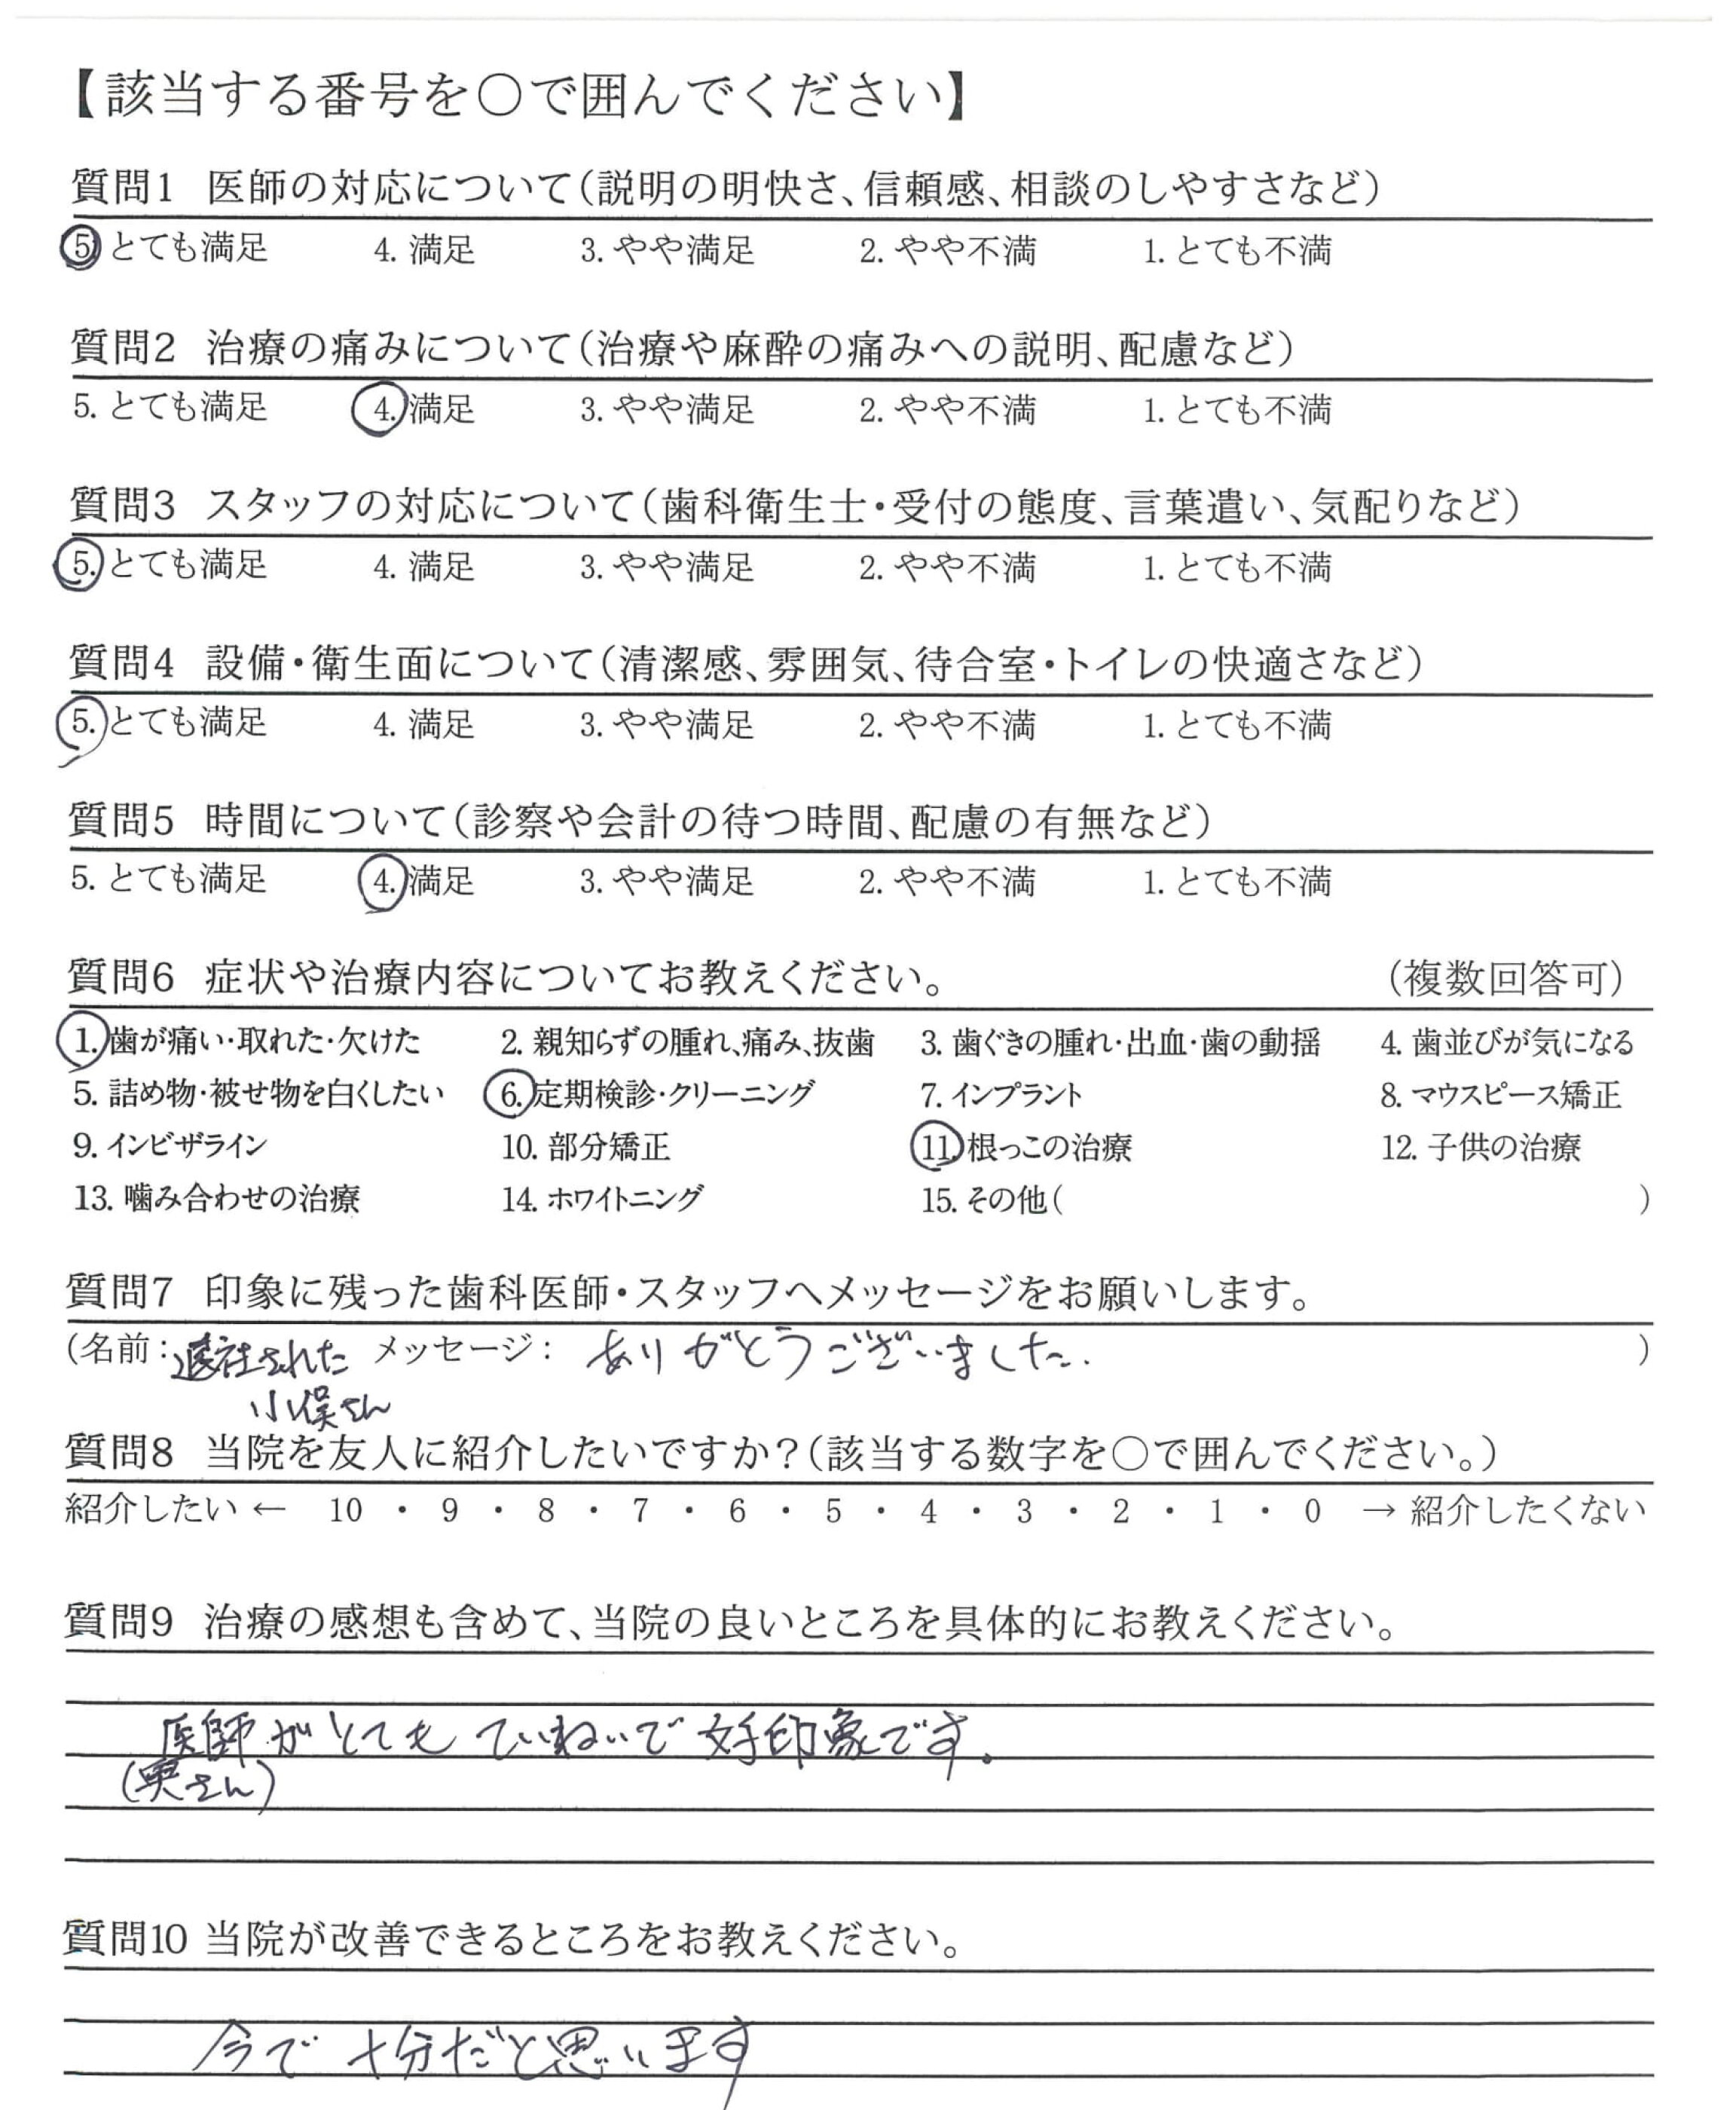 【該当する番号を○で囲んでください】
質問1 医師の対応について(説明の明快さ、信頼感、相談のしやすさなど)
5. とても満足 4. 満足 3. やや満足 2. やや不満 1. とても不満
質問2 治療の痛みについて(治療や麻酔の痛みへの説明、配慮など)
5. とても満足 4. 満足 3. やや満足 2. やや不満 1. とても不満
質問3 スタッフの対応について(歯科衛生士・受付の態度、言葉遣い、気配りなど)
5. とても満足 4. 満足 3. やや満足 2. やや不満 1. とても不満
質問4 設備・衛生面について(清潔感、雰囲気、待合室・トイレの快適さなど)
5. とても満足 4. 満足 3. やや満足 2. やや不満 1. とても不満
質問5 時間について(診察や会計の待つ時間、配慮の有無など)
5. とても満足 4. 満足 3. やや満足 2. やや不満 1. とても不満
質問6 症状や治療内容についてお教えください。 (複数回答可)
1. 歯が痛い・取れた・欠けた 2. 親知らずの腫れ、痛み、抜歯 3. 歯ぐきの腫れ・出血・歯の動揺 4. 歯並びが気になる
5. 詰め物・被せ物を白くしたい 6. 定期検診・クリーニング 7. インプラント 8. マウスピース矯正
9. インビザライン 10. 部分矯正 11. 根っこの治療 12. 子供の治療
13. 噛み合わせの治療 14. ホワイトニング 15. その他( )
質問7 印象に残った歯科医師・スタッフへメッセージをお願いします。
(名前:退社された メッセージ: ありがとうございました. )
小俣さん
質問8 当院を友人に紹介したいですか?(該当する数字を○で囲んでください。)
紹介したい ← 10 ・ 9 ・ 8 ・ 7 ・ 6 ・ 5 ・ 4 ・ 3 ・ 2 ・ 1 ・ 0 → 紹介したくない
質問9 治療の感想も含めて、当院の良いところを具体的にお教えください。
医師がとても ていねいで 好印象です。
(奥さん)
質問10 当院が改善できるところをお教えください。
今で 十分だと思います